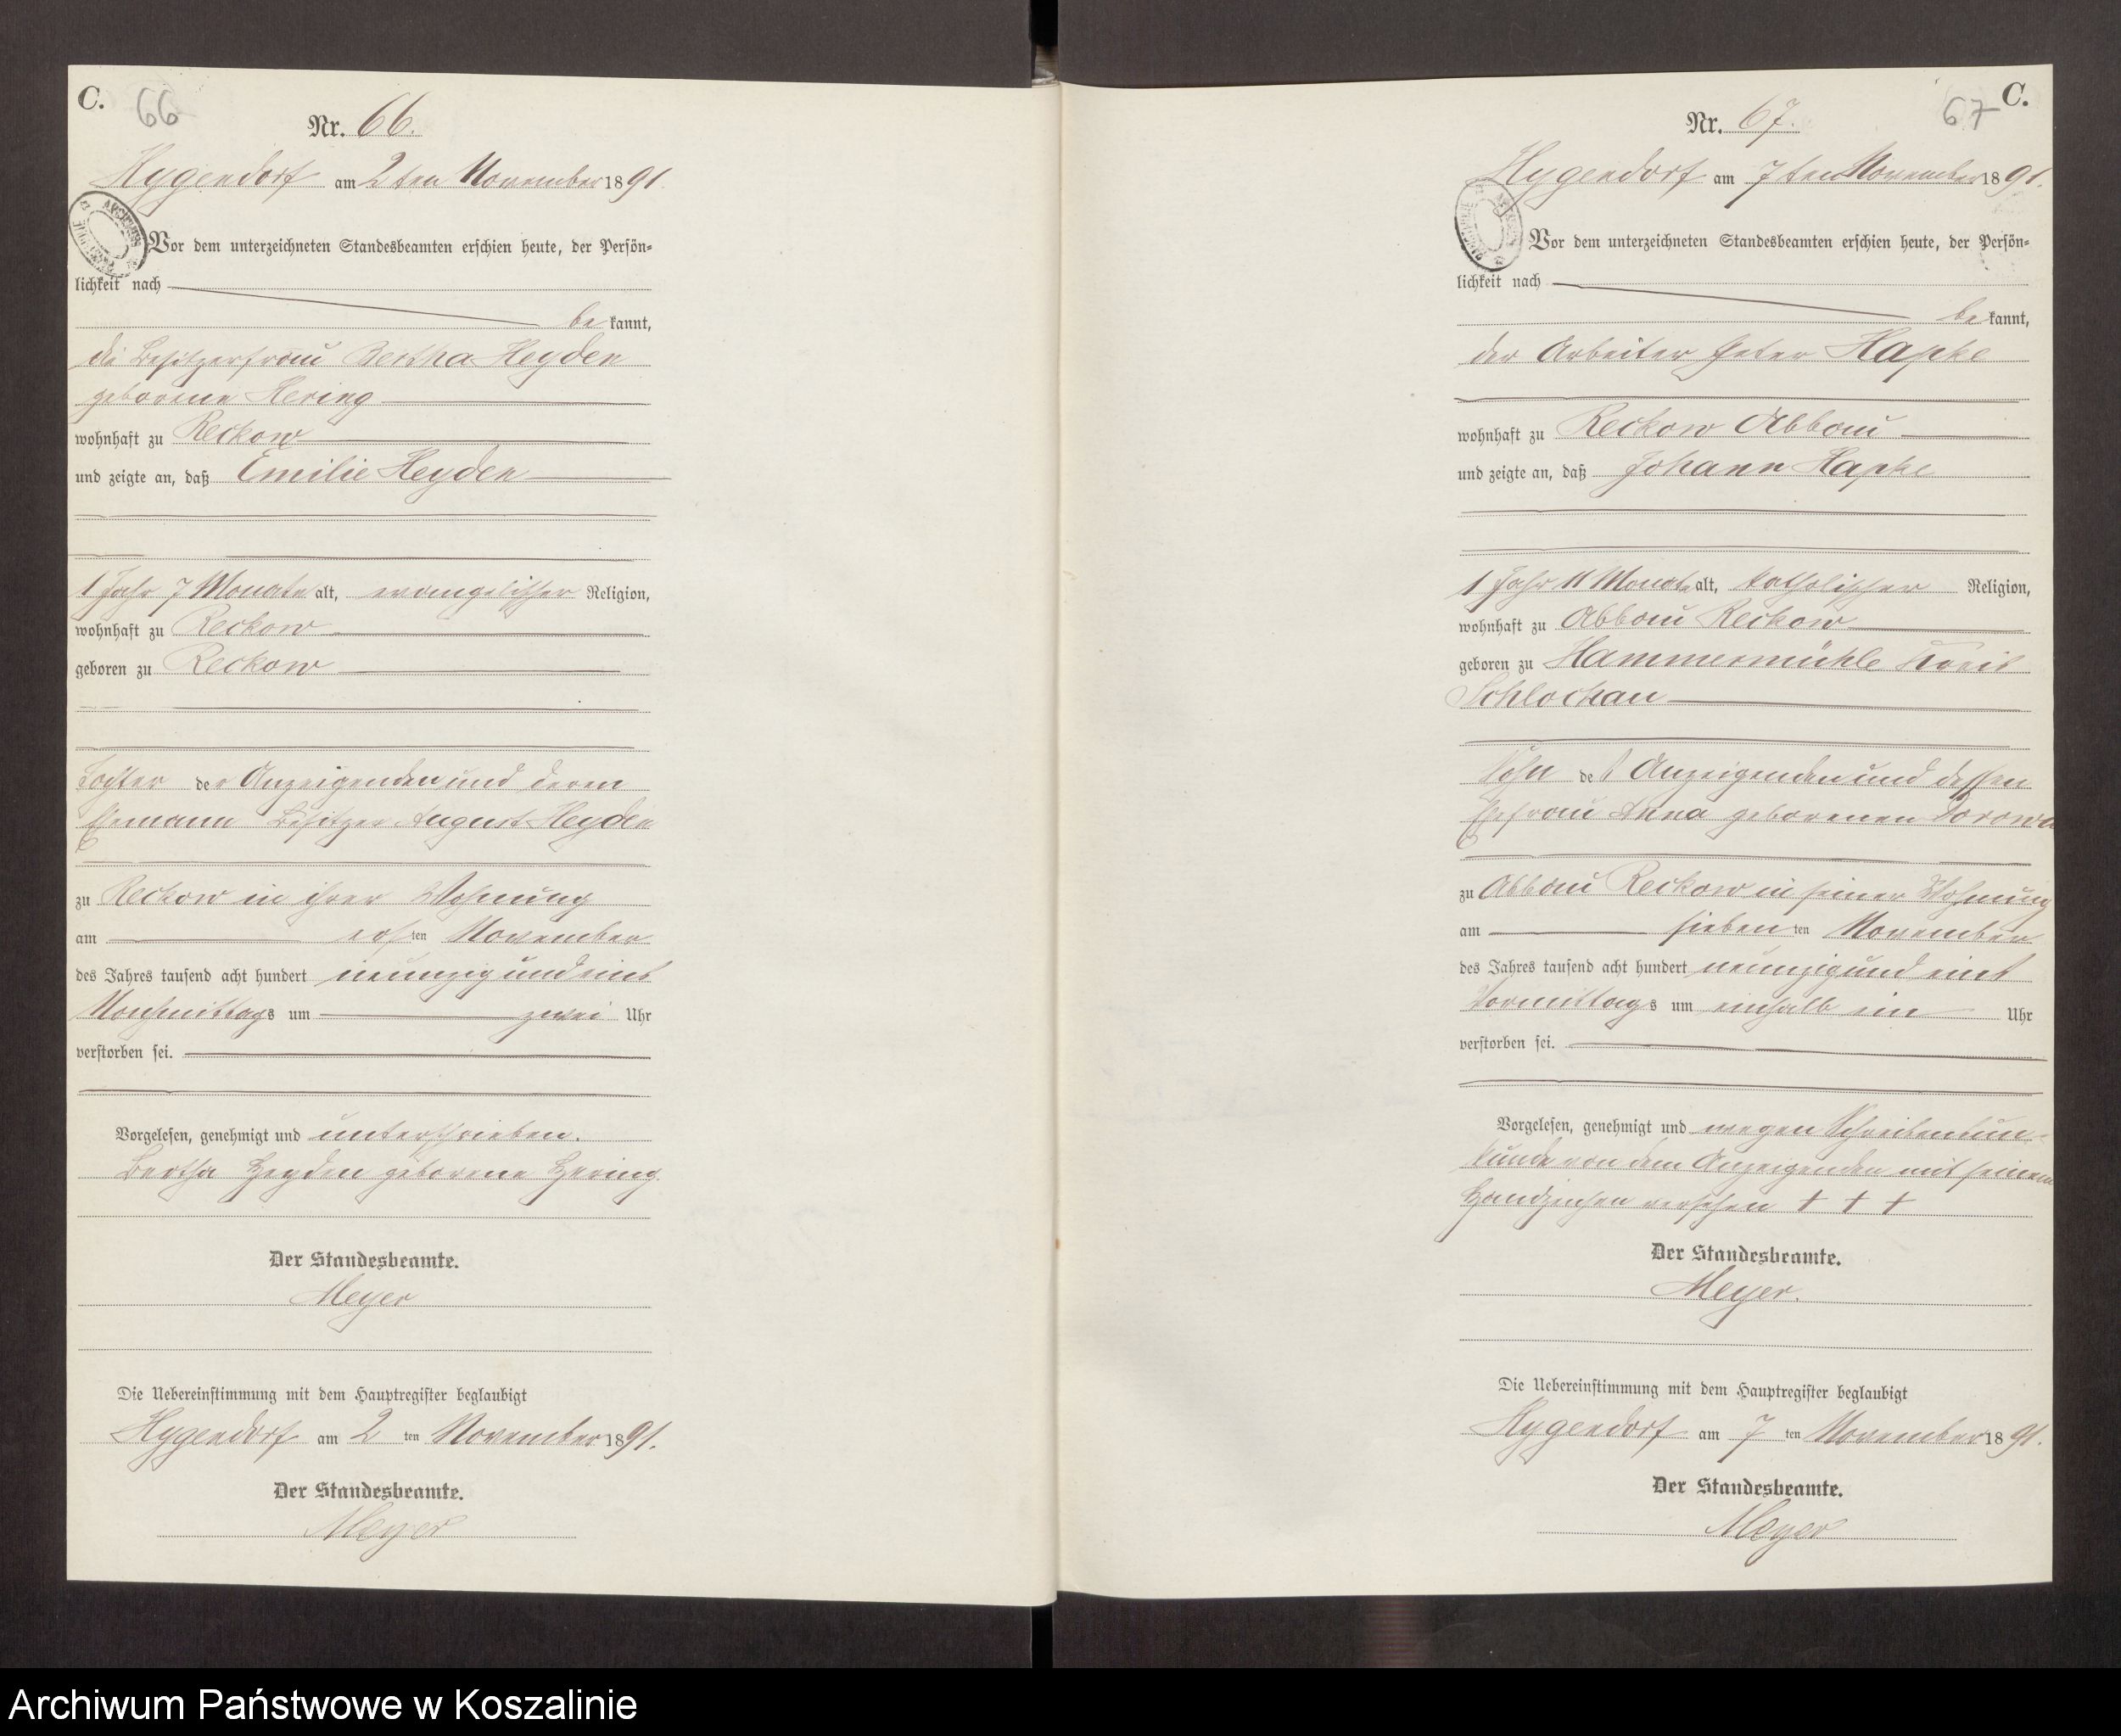 C.
66
Nr. 66.
Hygendorf am 2 ten November 1891.
Vor dem unterzeichneten Standesbeamten erschien heute, der Persön-
lichkeit nach
be kannt,
die Besitzerfrau Bertha Heyden
geborene Hering
wohnhaft zu Reckow
und zeigte an, daß Emilie Heyden
1 Jahr 7 Monate alt, evangelischer Religion,
wohnhaft zu Reckow
geboren zu Reckow
Tochter der Anzeigenden und deren
Ehemann Besitzer August Heyden
zu Reckow in ihrer Wohnung
am ersten November
des Jahres tausend acht hundert neunzig und eins
Nachmittags um zwei Uhr
verstorben sei.
Vorgelesen, genehmigt und unterschrieben.
Bertha Heyden geborene Hering
Der Standesbeamte.
Meyer
Die Uebereinstimmung mit dem Hauptregister beglaubigt
Hygendorf am 2 ten November 1891.
Der Standesbeamte.
Meyer
67
C.
Nr. 67.
Hygendorf am 7 ten November 1891.
Vor dem unterzeichneten Standesbeamten erschien heute, der Persön-
lichkeit nach
be kannt,
der Arbeiter Peter Hapke
wohnhaft zu Reckow Abbau
und zeigte an, daß Johann Hapke
1 Jahr 11 Monate alt, katholischer Religion,
wohnhaft zu Abbau Reckow
geboren zu Hammermühle Kreis
Schlochau
Sohn des Anzeigenden und dessen
Ehefrau Anna geborenen
zu Abbau Reckow in seiner Wohnung
am sieben ten November
des Jahres tausend acht hundert neunzig und eins
Vormittags um einhalb ein Uhr
verstorben sei.
Vorgelesen, genehmigt und wegen Schreibensun-
kunde von dem Anzeigenden mit seinem
Handzeichen versehen + + +
Der Standesbeamte.
Meyer.
Die Uebereinstimmung mit dem Hauptregister beglaubigt
Hygendorf am 7 ten November 1891.
Der Standesbeamte.
Meyer
Archiwum Państwowe w Koszalinie